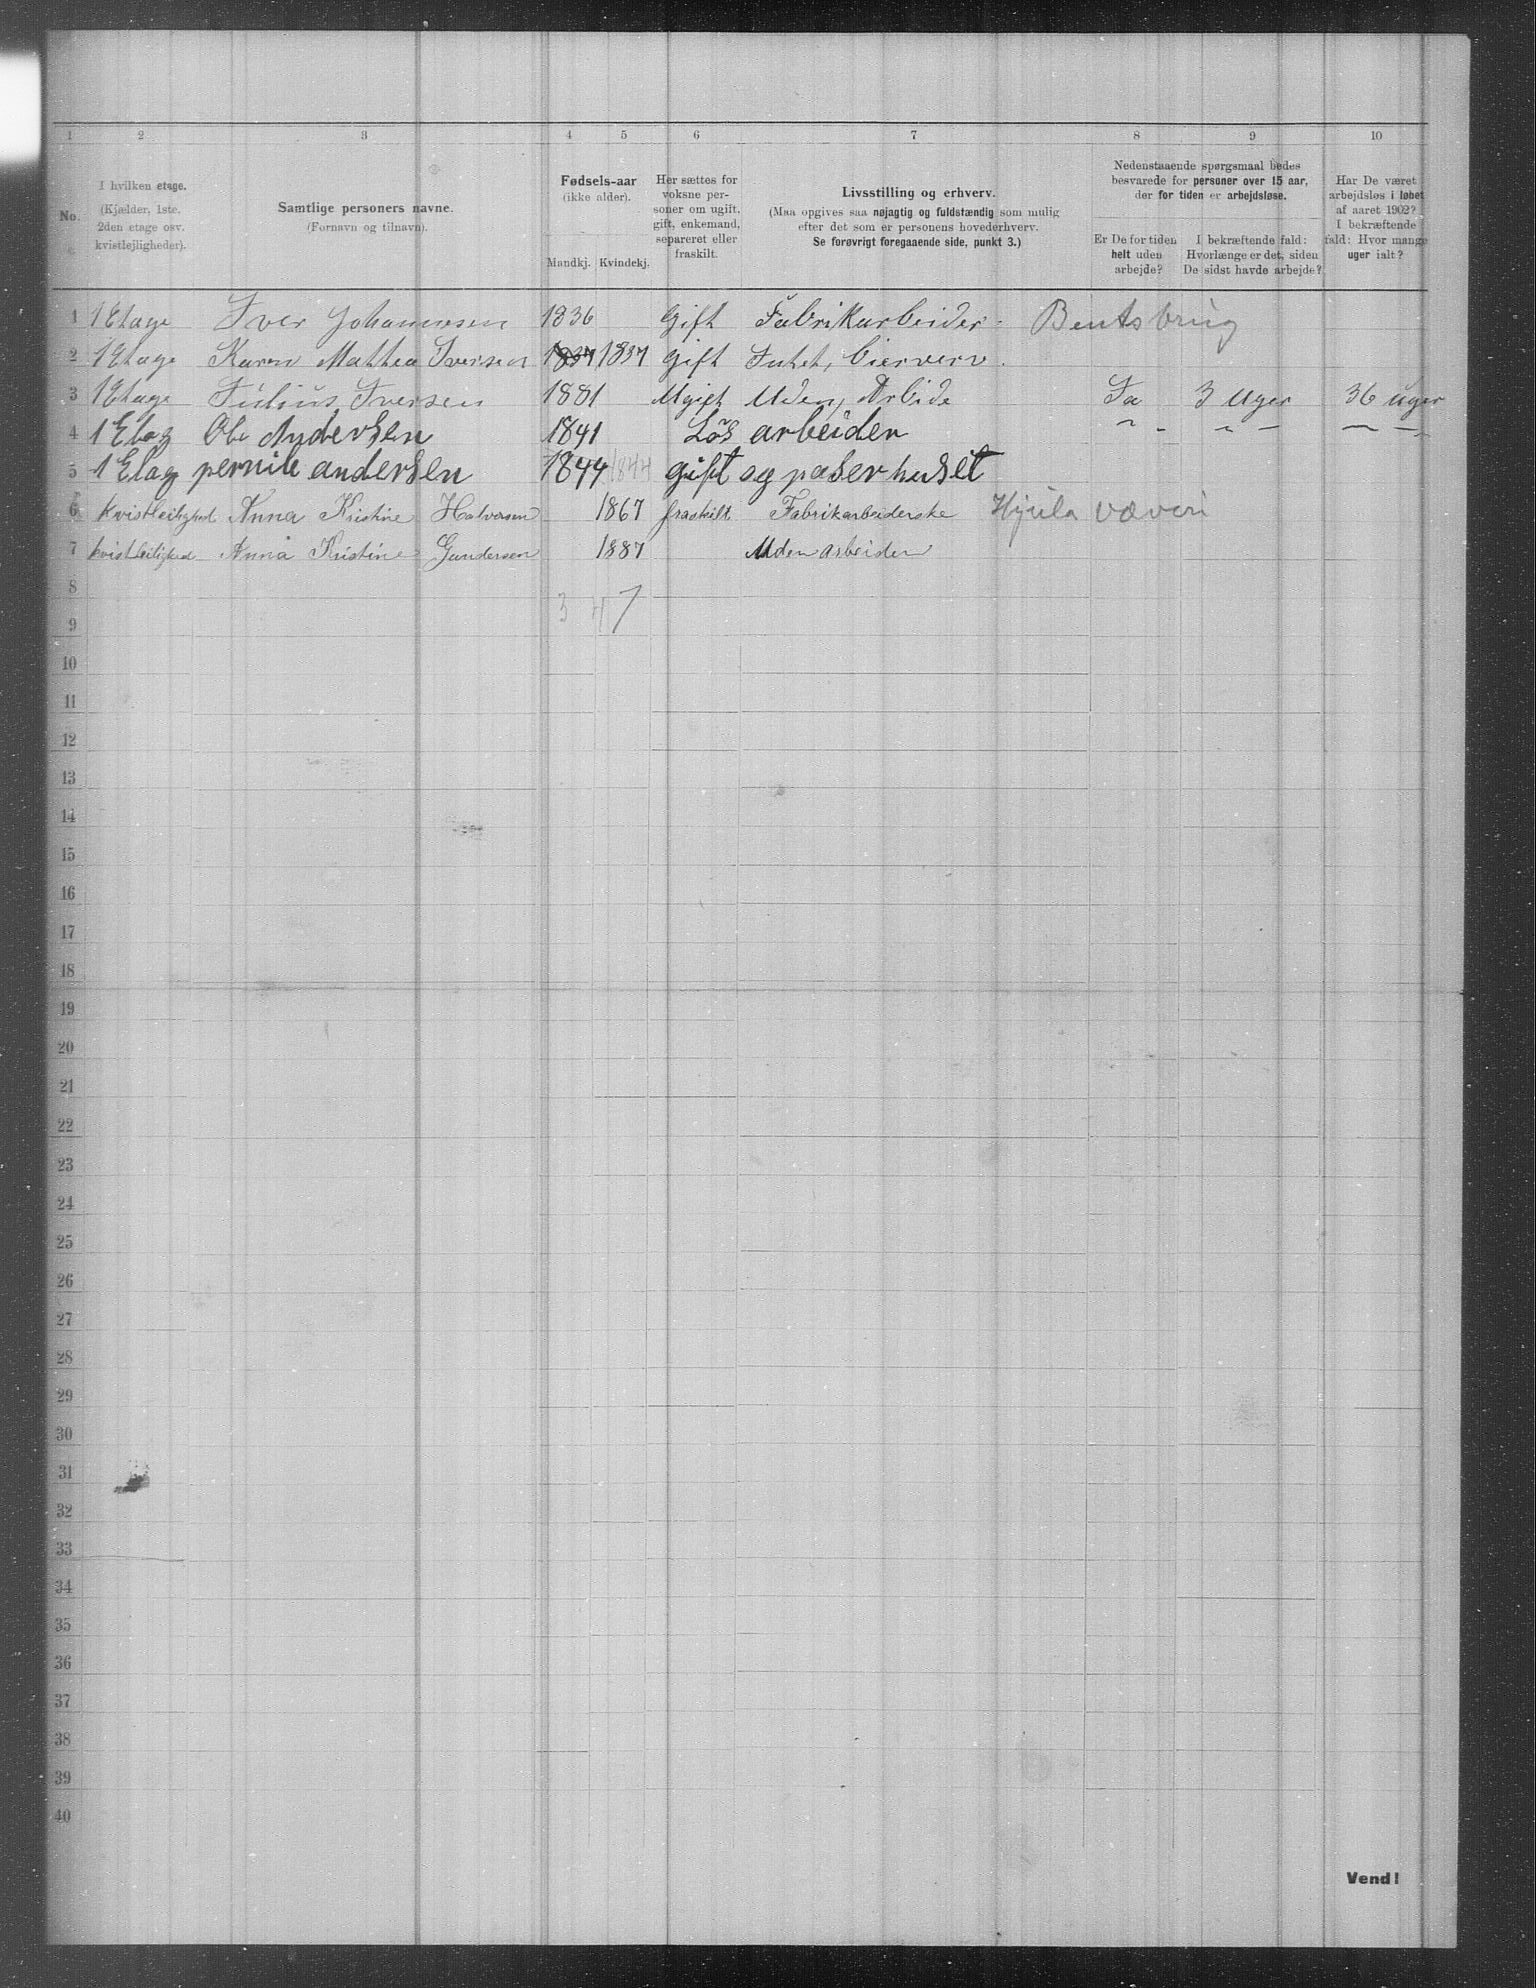 1 2 3 4 5 6 7 8 9 10
No.
I hvilken etage.
(Kjælder, 1ste.
2den etage osv.
kvistlejligheder).
Samtlige personers navne.
(Fornavn og tilnavn).
Fødsels-aar
(ikke alder).
Mandkj. Kvindekj.
Her sættes for
voksne per-
soner om ugift,
gift, enkemand,
separeret eller
fraskilt.
Livsstilling og erhverv.
(Maa opgives saa nøjagtig og fuldstændig som mulig
efter det som er personens hovederhverv.
Se forøvrigt foregaaende side, punkt 3.)
Nedenstaaende spørgsmaal bedes
besvarede for personer over 15 aar,
der for tiden er arbejdsløse.
Er De for tiden
helt uden
arbejde?
I bekræftende fald:
Hvorlænge er det, siden
De sidst havde arbejde?
Har De været
arbejdsløs i løbet
af aaret 1902?
I bekræftende
fald: Hvor mange
uger ialt?
1 1 Etage Iver Johannesen 1836 Gift Fabrikarbeider. Bentsbrug
2 1 Etage Karen Mathea Iversen 1837 1837 Gift Intet,
3 1 Etage Julius Iversen 1881 Ugift Uden, Arbide Ja 3 Uger 36 uger
4 1 Etag Ole Andersen 1841 Løs arbeider " - - " - - " -
5 1 Etag pernile andersen 1844 1844 gift og paser huset
6 Kvistleilighed Anna Kristine Halvorsen 1867 fraskilt Fabrikarbeiderske Hjula væveri
7 kvistleilighed Anna Kristine Gundersen 1887 Uden arbeiden
8
3 4 7
9
10
11
12
13
14
15
16
17
18
19
20
21
22
23
24
25
26
27
28
29
30
31
32
33
34
35
36
37
38
39
40
Vend!